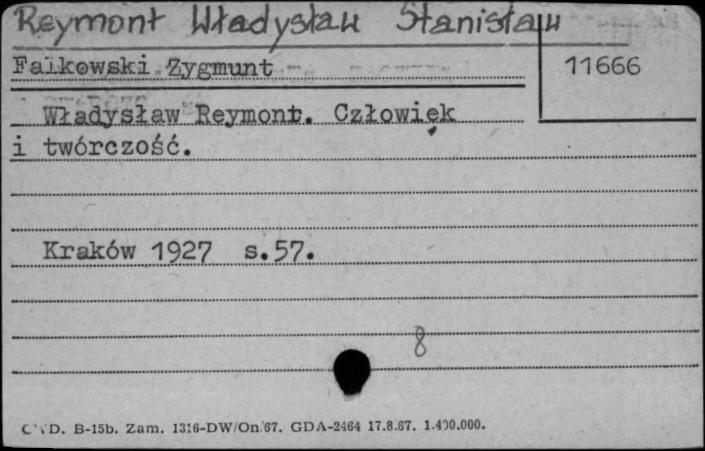 Reymont Władysław Stanisław
Falkowski Zygmunt
11666
Władysław Reymont. Człowiek
i twórczość.
Kraków 1927 s.57.
8
B-15b. Zam. 1316-DW/On/67. GDA-2464 17.8.67. 1.400.000.